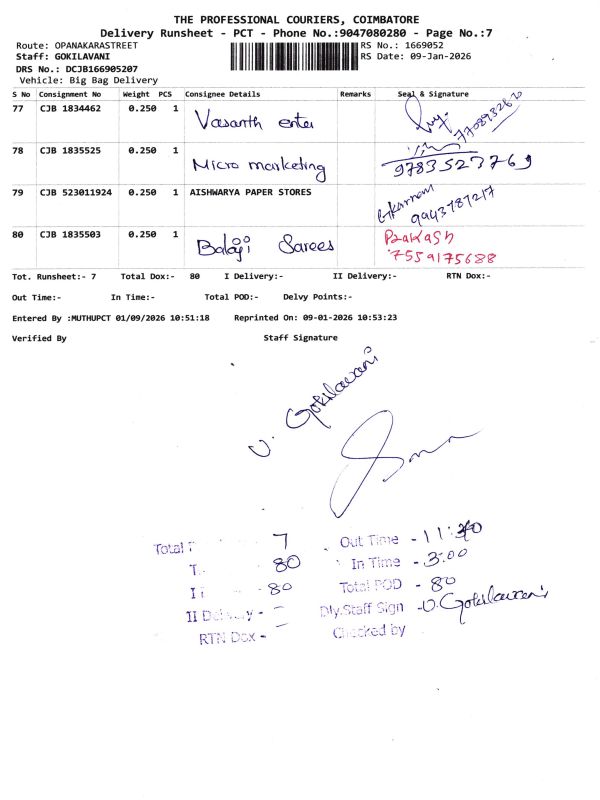 THE PROFESSIONAL COURIERS, COIMBATORE
Delivery Runsheet - PCT - Phone No.:9047080280 - Page No.:7
Route: OPANAKARASTREET
RS No.: 1669052
Staff: GOKILAVANI
RS Date: 09-Jan-2026
DRS No.: DCJB166905207
Vehicle: Big Bag Delivery
S No Consignment No Weight PCS Consignee Details Remarks Seal & Signature
77 CJB 1834462 0.250 1 Vasanth enter
78 CJB 1835525 0.250 1 Micro marketing 9783523769
79 CJB 523011924 0.250 1 AISHWARYA PAPER STORES 9943787217
80 CJB 1835503 0.250 1 Balaji Sarees Prakash
7559175688
Tot. Runsheet:- 7 Total Dox:- 80 I Delivery:- II Delivery:- RTN Dox:-
Out Time:- In Time:- Total POD:- Delvy Points:-
Entered By :MUTHUPCT 01/09/2026 10:51:18 Reprinted On: 09-01-2026 10:53:23
Verified By Staff Signature
U. Gokilavani
Total 7 Out Time -
80 In Time - 3:00
80 Total POD - 80
II Delivery - Dly.Staff Sign - U. Gokilavani
RTN Dox - Checked by